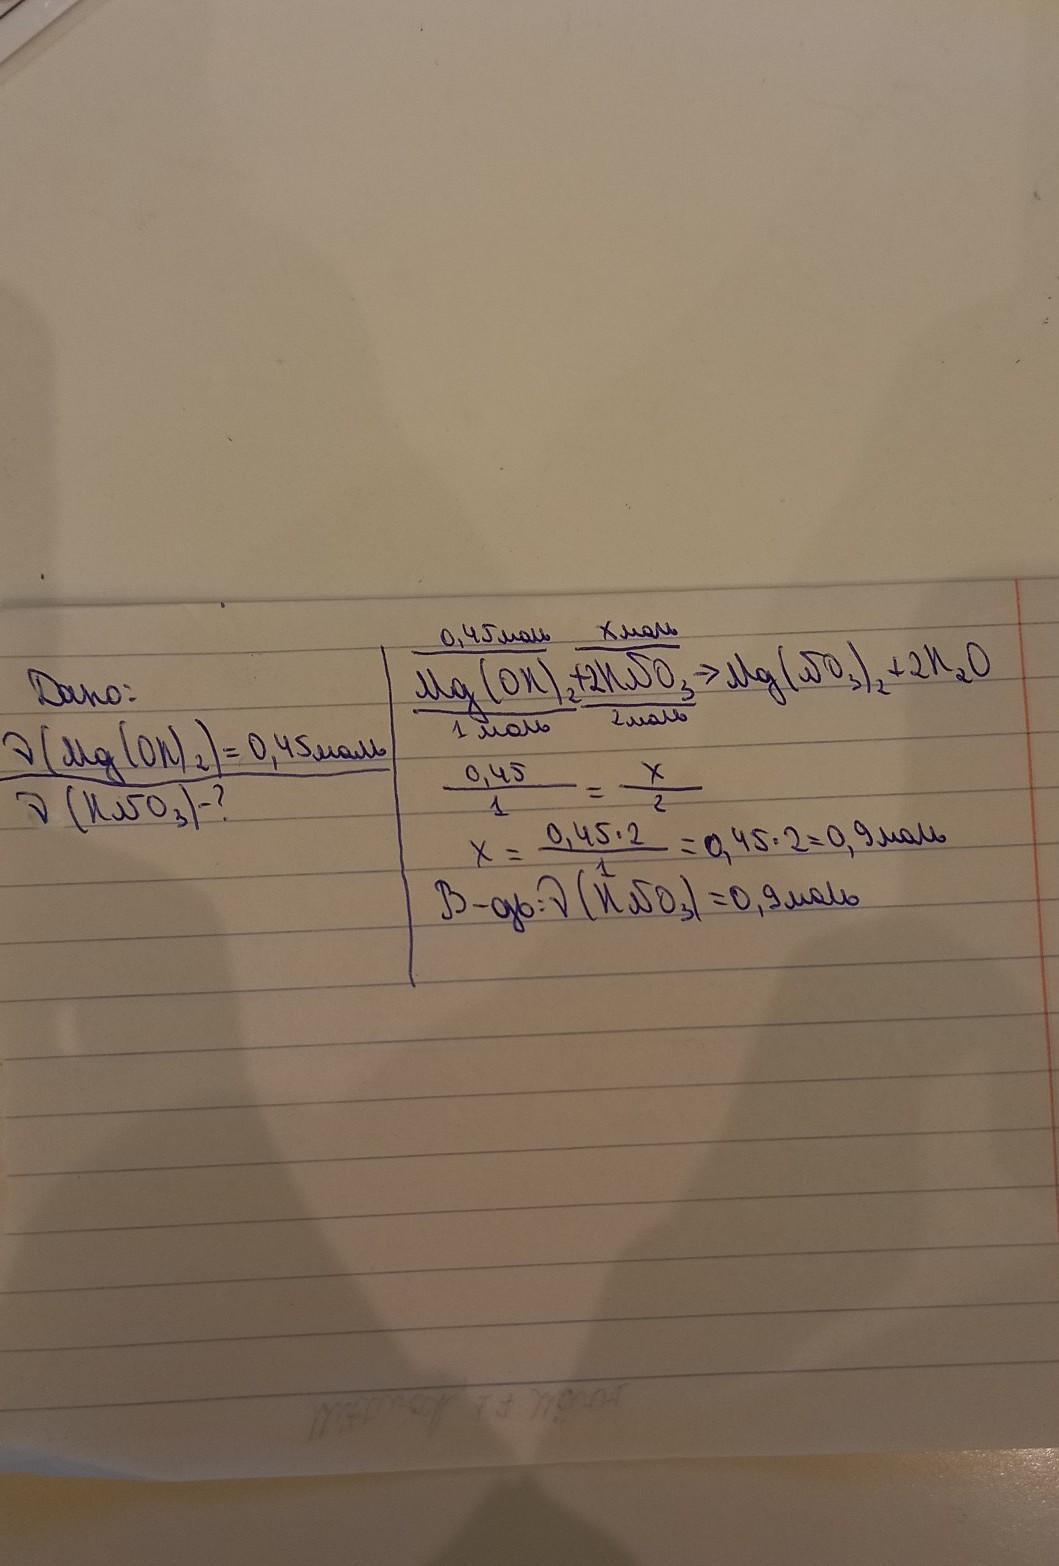 Дано:
ν(Mg(OH)₂)=0,45моль
ν(HNO₃)-?
0,45моль xмоль
Mg(OH)₂+2HNO₃→Mg(NO₃)₂+2H₂O
1 моль 2моль
0,45/1 = x/2
x = 0,45·2/1 = 0,45·2=0,9моль
В-дь:ν(HNO₃)=0,9моль